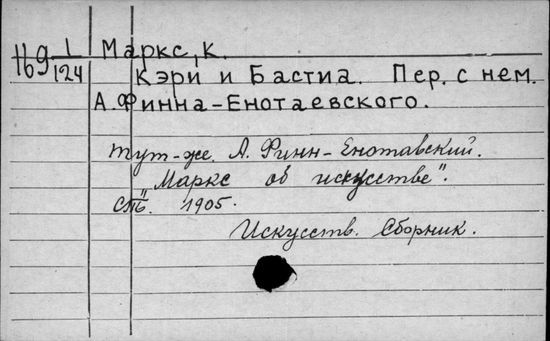 169 1/124 Маркс, К.
Кэри и Бастиа. Пер. с нем.
А. Финна-Енотаевского.
Тут-же. А. Финн-Енотавский.
"Маркс об искусстве".
СПБ. 1905.
Искусств. Сборник.